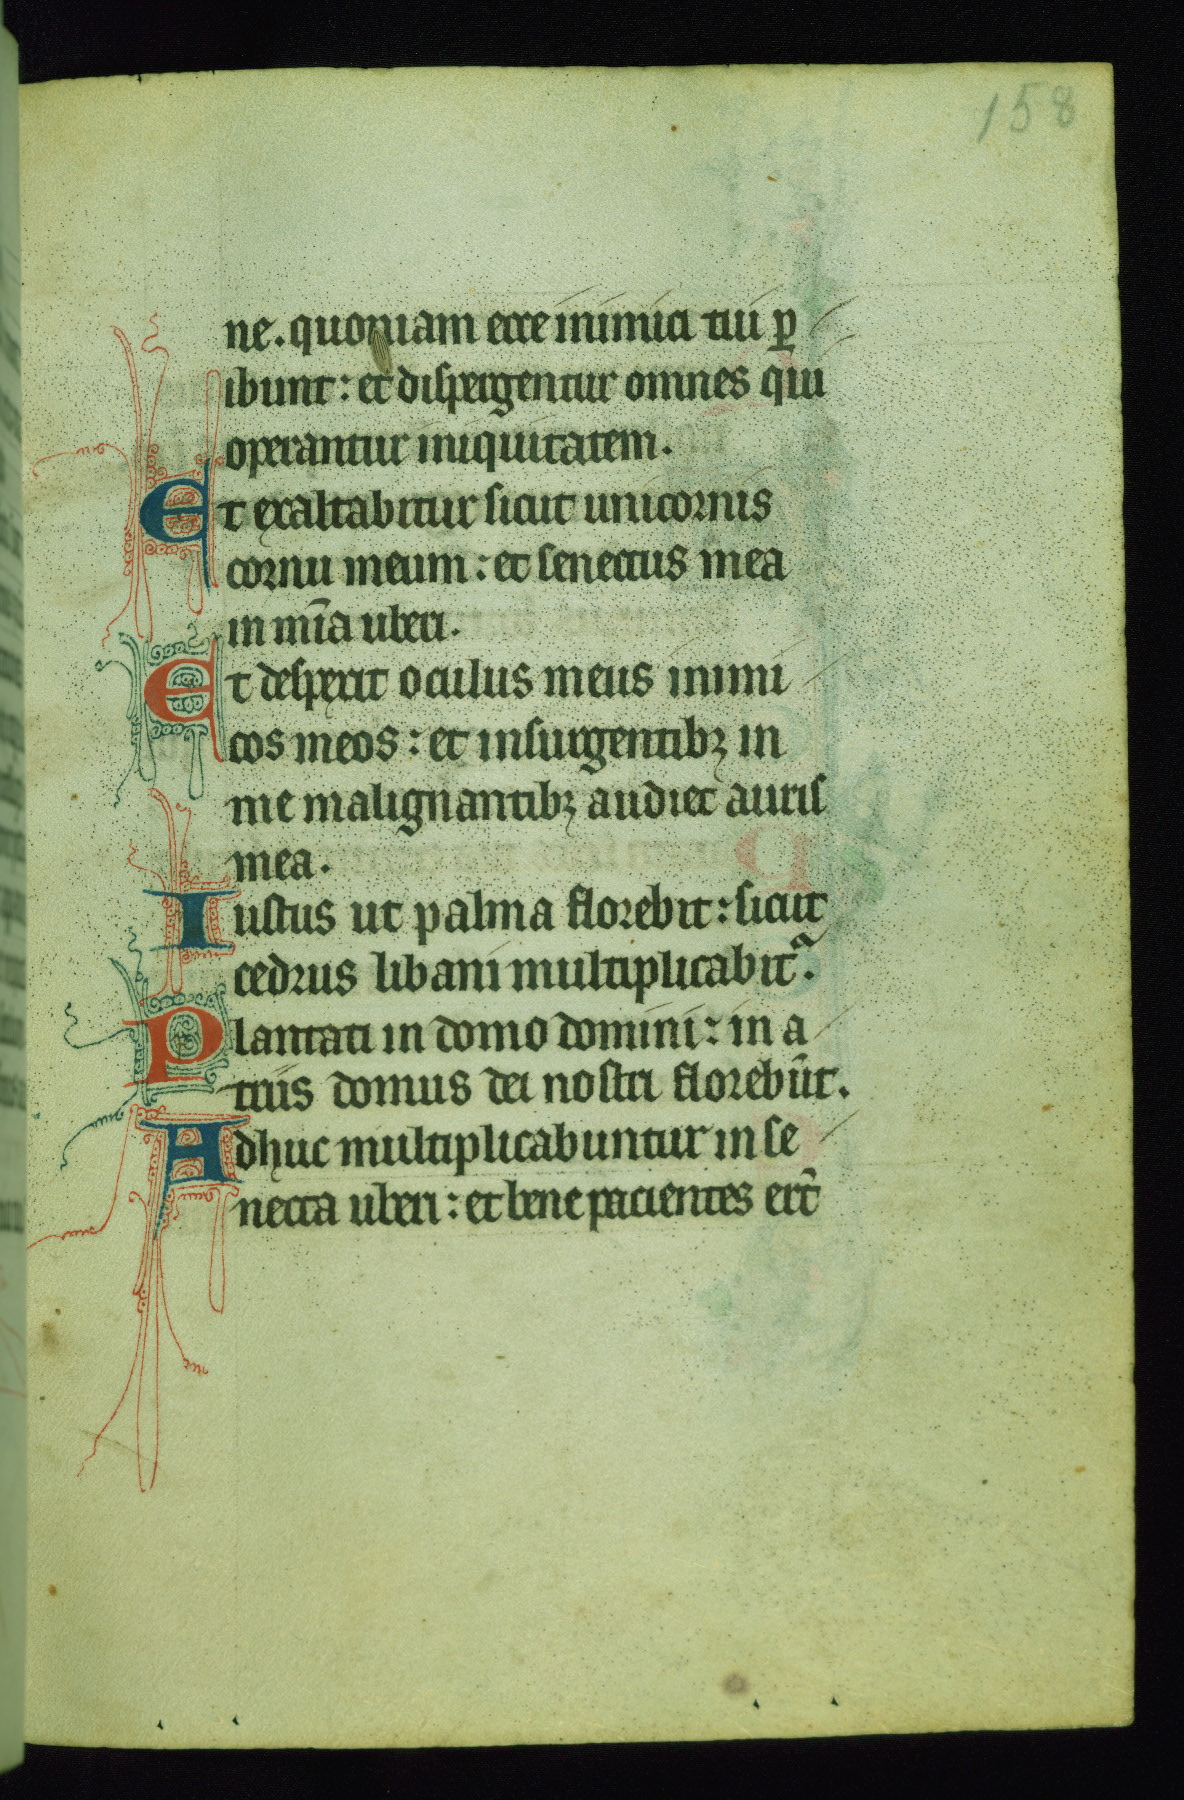 158
ne. quoniam ecce inimici tui ꝑ
ibunt: et dispergentur omnes qui
operantur iniquitatem.
Et exaltabitur sicut unicornis
cornu meum: et senectus mea
in mīa uberi.
Et despexit oculus meus inimi
cos meos: et insurgentibꝫ in
me malignantibꝫ audiet auris
mea.
Iustus ut palma florebit: sicut
cedrus libani multiplicabitᵃ.
Plantati in domo domini: in a
triis domus dei nostri florebūt.
Adhuc multiplicabuntur in se
necta uberi: et bene pacientes erūt